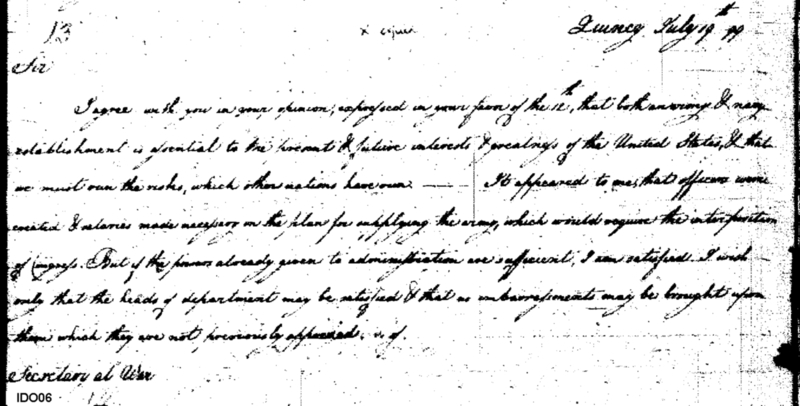 13
Quincy July 19th 99
Sir
I agree with you in your opinion, expressed in your favor of the 12th, that both an army & navy
establishment is essential to the present & future interests & greatness of the United States, & that
we must run the risks, which other nations have run. It appeared to me, that officers were
created & salaries made necessary on the plan for supplying the army, which would require the interposition
of Congress. But if the powers already given to administration are sufficient, I am satisfied. I wish
only that the heads of department may be satisfied & that no embarrassments may be brought upon
them which they are not previously apprised
Secretary at War
IDO06